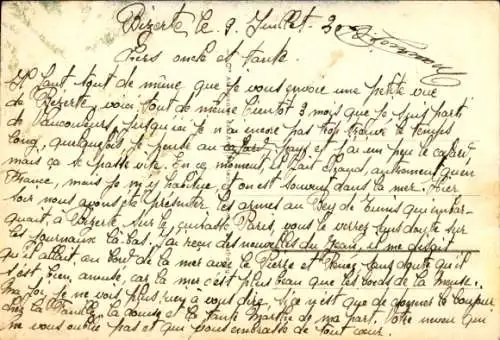 Bizerte le 9 Juillet 30
Chers oncle et tante.
Il faut tout de même que je vous envoie une petite vue
de Bizerte, voici tout de même bientôt 3 mois que je suis parti
de Vaucouleurs, jusqu'ici je n'ai encore pas trop trouvé le temps
long, quelquefois je pense au pays et j'ai un peu le cafard
mais ça se passe vite. En ce moment, il fait chaud, autrement qu'en
France, mais je m'y habitue, et on est souvent dans la mer. Hier
soir nous avons été présenter les armes au Bey de Tunis qui embar-
quait à Bizerte sur le cuirassé Paris, vous le verrez sans doute sur
les journaux là-bas. J'ai reçu des nouvelles du Jean, il me disait
qu'il allait au bord de la mer avec le Pierre et René, sans doute qu'il
s'est bien amusé, car la mer c'est plus beau que les bords de la Meuse.
Ma foi je ne vois plus rien à vous dire, si ce n'est que de donner le bonjour
chez la la Louise et la tante Marthe de ma part. Votre neveu qui
ne vous oublie pas et qui vous embrasse de tout cœur.